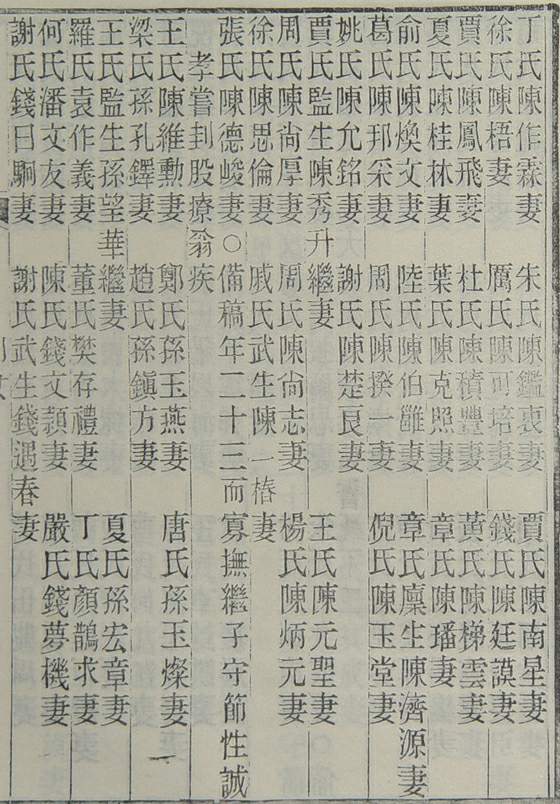 丁氏陳作霖妻 朱氏陳鑑衷妻 賈氏陳南星妻
徐氏陳梧妻 厲氏陳可培妻 錢氏陳廷謨妻
賈氏陳鳳飛妻 杜氏陳積豐妻 黃氏陳梯雲妻
夏氏陳桂林妻 葉氏陳克照妻 章氏陳璠妻
俞氏陳煥文妻 陸氏陳伯雝妻 章氏廩生陳濟源妻
葛氏陳邦采妻 周氏陳揆一妻 倪氏陳玉堂妻
姚氏陳允銘妻 謝氏陳楚良妻
賈氏監生陳秀升繼妻 王氏陳元聖妻
周氏陳尚厚妻 周氏陳尚志妻 楊氏陳炳元妻
徐氏陳思倫妻 戚氏武生陳一樁妻
張氏陳德峻妻○備稿年二十三而寡撫繼子守節性誠
孝嘗刲股療翁疾
王氏陳維勳妻 鄭氏孫玉燕妻 唐氏孫玉燦妻
梁氏孫孔鐸妻 趙氏孫鎮方妻
王氏監生孫望華繼妻 夏氏孫宏章妻
羅氏袁作義妻 董氏樊存禮妻 丁氏顏鵲求妻
何氏潘文友妻 陳氏錢文穎妻 嚴氏錢夢機妻
謝氏錢日駉妻 謝氏武生錢遇春妻